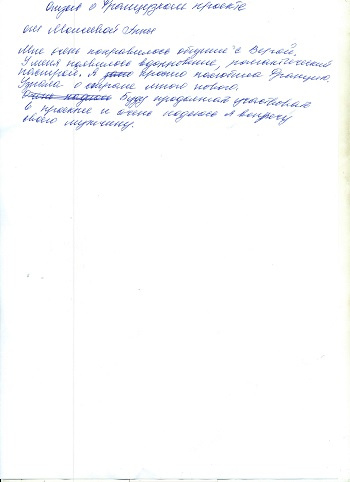 Отзыв о Французском проекте
от Моисеевой Анны
Мне очень понравилось общение с Верой.
У меня появилось вдохновение, романтический
настрой. А просто полюбила Францию.
Узнала о стране много нового.
Буду продолжать участвовать
в проекте и очень надеюсь я встречу
своего мужчину.